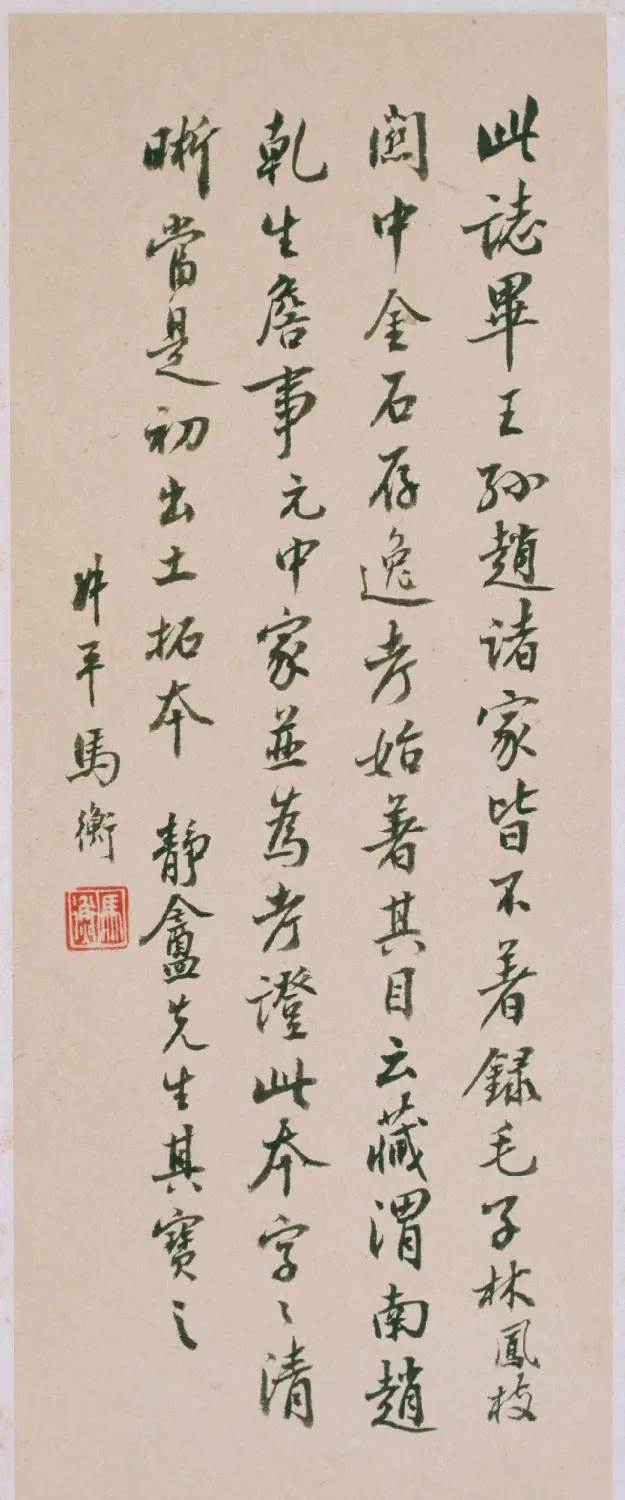 此誌畢王孫趙諸家皆不著録毛子林鳳枝
關中金石存逸考始著其目云藏渭南趙
乾生詹事元中家並為考證此本字〻清
晰當是初出土拓本 靜盦先生其寶之
叔平馬衡
馬衡